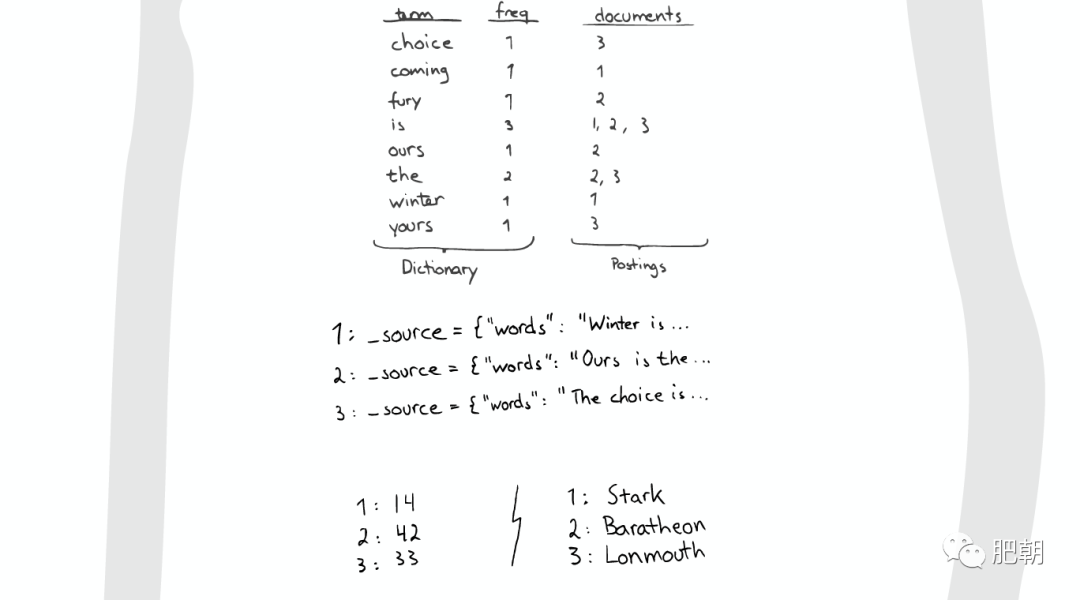 term freq documents
choice 1 3
coming 1 1
fury 1 2
is 3 1, 2, 3
ours 1 2
the 2 2, 3
winter 1 1
yours 1 3
Dictionary Postings
1: _source = {"words": "Winter is ...
2: _source = {"words": "Ours is the ...
3: _source = {"words": "The choice is ...
1: 14 1: Stark
2: 42 2: Baratheon
3: 33 3: Lonmouth
肥朝